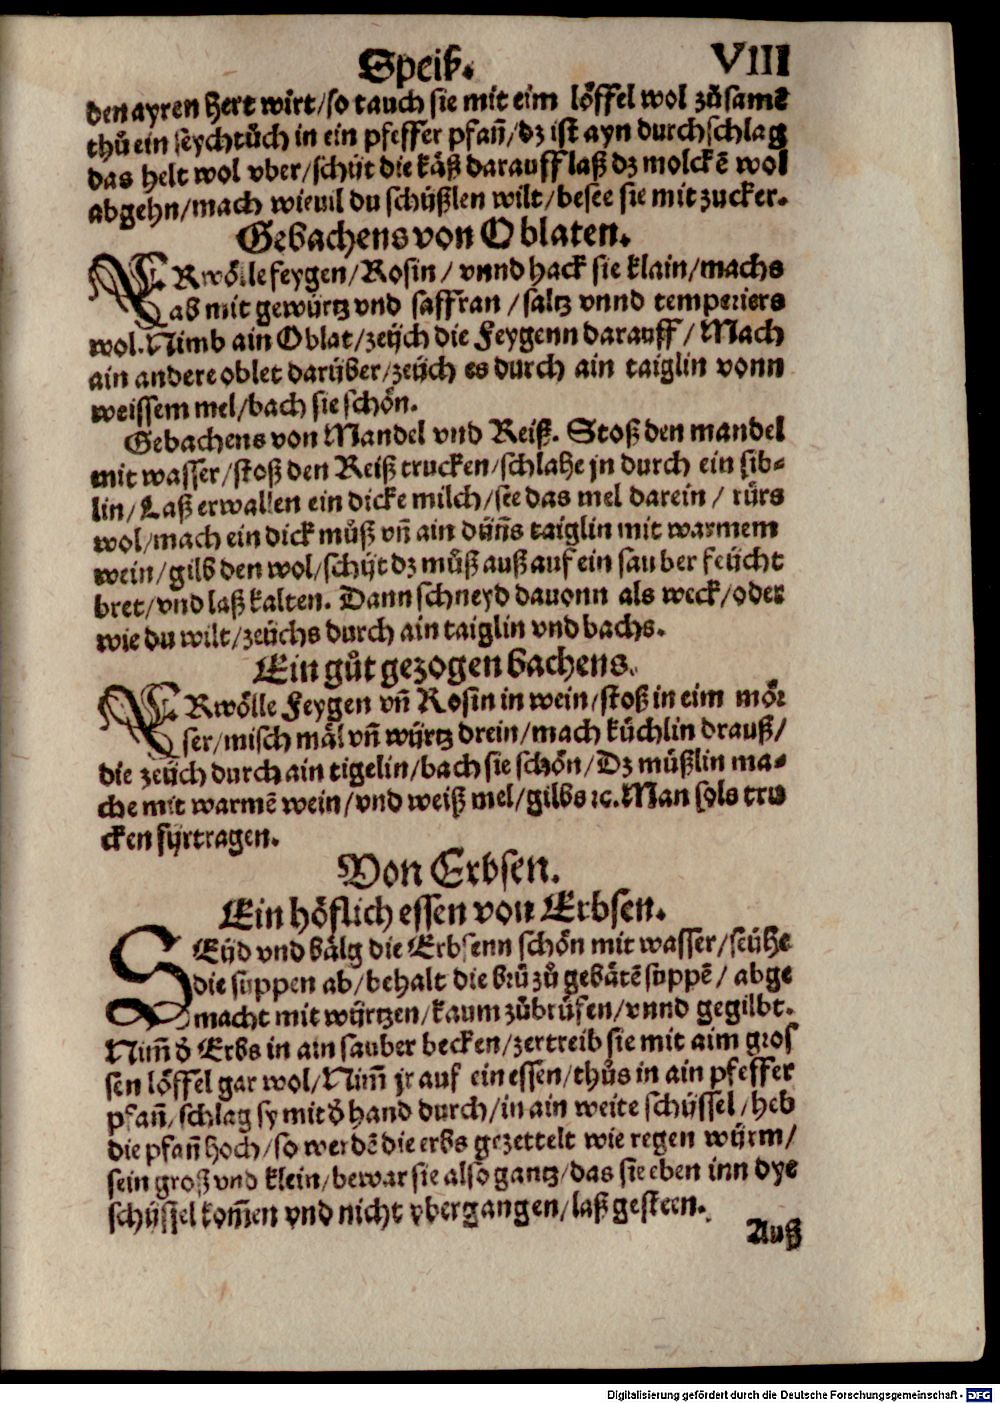 Speiß.
VIII
den ayren hert wirt/so tauch sie mit eim löffel wol zůsamẽ
thů ein seychtůch in ein pfeffer pfañ/dz ist ayn durchschlag
das helt wol vber/schÿt die käß darauff laß dz molckẽ wol
abgehn/mach wieuil du schüßlen wilt/besee sie mit zucker.
Gebachens von Oblaten.
ERwölle feygen/Rosin/vnnd hack sie klain/machs
ab mit gewürtz vnd saffran/saltz vnnd temperiers
wol. Nimb ain Oblat/zeüch die Feygenn darauff/Mach
ain andere oblet darüber/zeüch es durch ain taiglin vonn
weissem mel/bach sie schön.
Gebachens von Mandel vnd Reiß. Stoß den mandel
mit wasser/stoß den Reiß trucken/schlahe jn durch ein sib-
lin/Laß erwallen ein dicke milch/see das mel darein/rürs
wol/mach ein dick můß vñ ain düñs taiglin mit warmem
wein/gilb den wol/schÿt dz můß auß auf ein sauber feücht
bret/vnd laß kalten. Dann schneyd dauonn als weck/oder
wie du wilt/zeüchs durch ain taiglin vnd bachs.
Ein gůt gezogen bachens.
ERwölle Feygen vñ Rosin in wein/stoß in eim mör
ser/misch mäl vñ wÿrtz drein/mach küchlin drauß/
die zeüch durch ain tigelin/bach sie schön/Dz můßlin ma-
che mit warmẽ wein/vnd weiß mel/gilbs ꝛc. Man sols tru
cken fÿrtragen.
Von Erbsen.
Ein höflich essen von Erbsen.
SEüd vnd bälg die Erbsenn schön mit wasser/seühe
die suppen ab/behalt die brü zů gebätẽ suppẽ/abge
macht mit wÿrtzen/kaum zůbrüfen/vnnd gegilbt.
Nim̃ d̕ Erbs in ain sauber becken/zertreib sie mit aim gros
sen löffel gar wol/Nim̃ jr auf ein essen/thůs in ain pfeffer
pfañ/schlag sy mit d̕ hand durch/in ain weite schÿssel/heb
die pfañ hoch/so werdẽ die erbs gezettelt wie regen wÿrm/
sein groß vnd klein/bewar sie also gantz/das sie eben inn dye
schÿssel kom̃en vnd nicht vbergangen/laß gesteen.
Auß
Digitalisierung gefördert durch die Deutsche Forschungsgemeinschaft - DFG